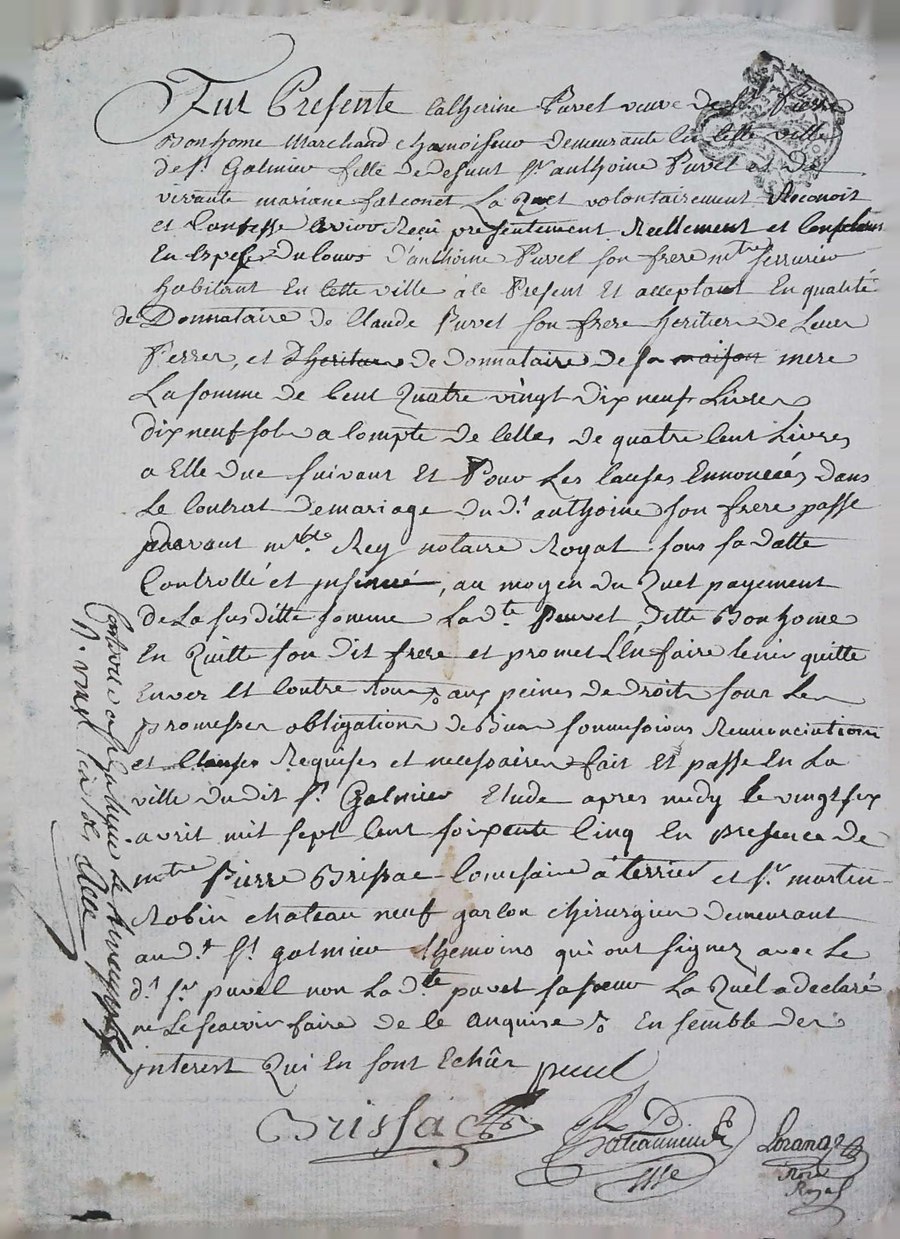 Fut Presente Catherine Puvel veuve de Sr Pierre
Bonhome Marchand chamoiseur demeurante en cette ville
de St Galmier fille de defunt Sr anthoine Puvel et de
vivante mariane falconet La Quel volontairement Reconoit
et Confesse avoir Recu presentement Reellement et
En Espece du Cours d'anthoine Puvel son frere mtre serrurier
habitant En Cette ville a ce Present Et acceptant En qualité
de Donnataire de Claude Puvel son frere heritier de Leur
Perrer, et de donnataire de sa mere
La somme de Cent Quatre vingt dix neuf Livres
dix neuf sols a Compte de Celles de quatre Cent Livres
a Elle due suivant Et Pour Les Causes Ennoncées dans
Le Contrat de mariage du dt anthoine son frere passe
pardevant Rey notaire Royal sous sa datte
Controllé et insinué, au moyen du Quel payement
de La susditte somme La dte Puvel ditte Bonhome
En Quitte son dit frere et promet L'En faire tenir quitte
Enver Et Contre tous aux peines de droit sous Les
promesses obligations de Biens soumissions Renonciations
et Clauses Requises et necessaires fait Et passe En La
ville du dit St Galmier Etude apres midy le vingt six
avril mil sept Cent soixente Cinq En presence de
mtre Pierre Brissac Comissaire a terrier et Sr martin
Robin chateau neuf garson chirurgien demeurant
au dt St galmier themoins qui ont signez avec Le
dt Sr puvel non La dte puvel sa sœur La Quel a declaré
ne Le scavoir faire de ce Enquise Ensemble des
interest Qui En sont Echûs
puvel
Brissac
Chateauneuf
Lorange
Nore
Royal